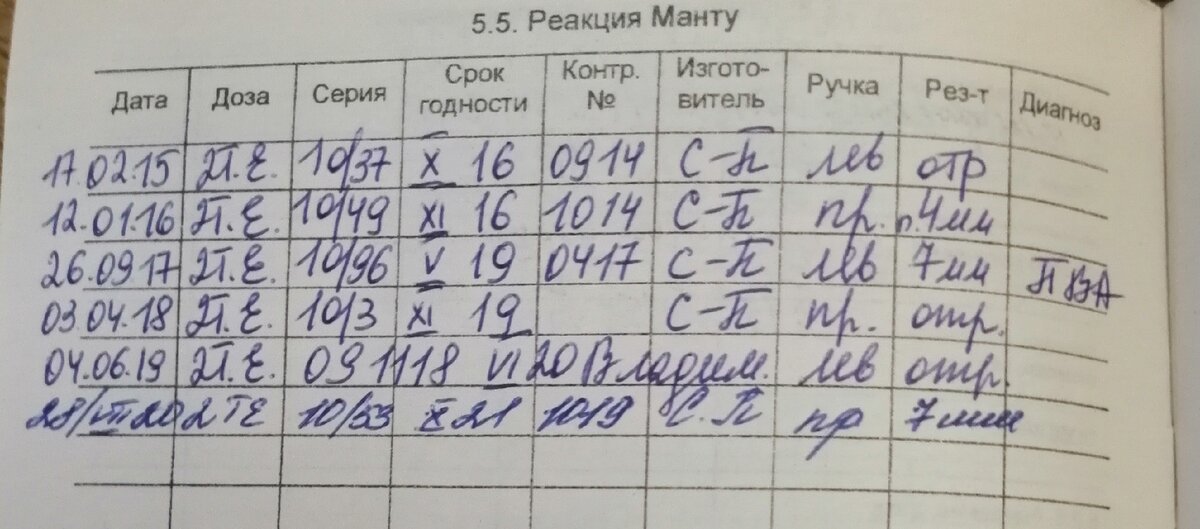 5.5. Реакция Манту
Дата Доза Серия Срок годности Контр. № Изгото-витель Ручка Рез-т Диагноз
17.02.15 2Т.Е. 10/37 X 16 0914 С-П лев отр
12.01.16 2Т.Е. 10/49 XI 16 1014 С-П пр. п.4мм
26.09.17 2Т.Е. 10/96 V 19 0417 С-П лев 7мм ПВА
03.04.18 2Т.Е. 10/3 XI 19 С-П пр. отр.
04.06.19 2Т.Е. 091118 VI 20 Владим. лев отр.
2 ТЕ 10/53 X 21 1019 С.П пр 7мм